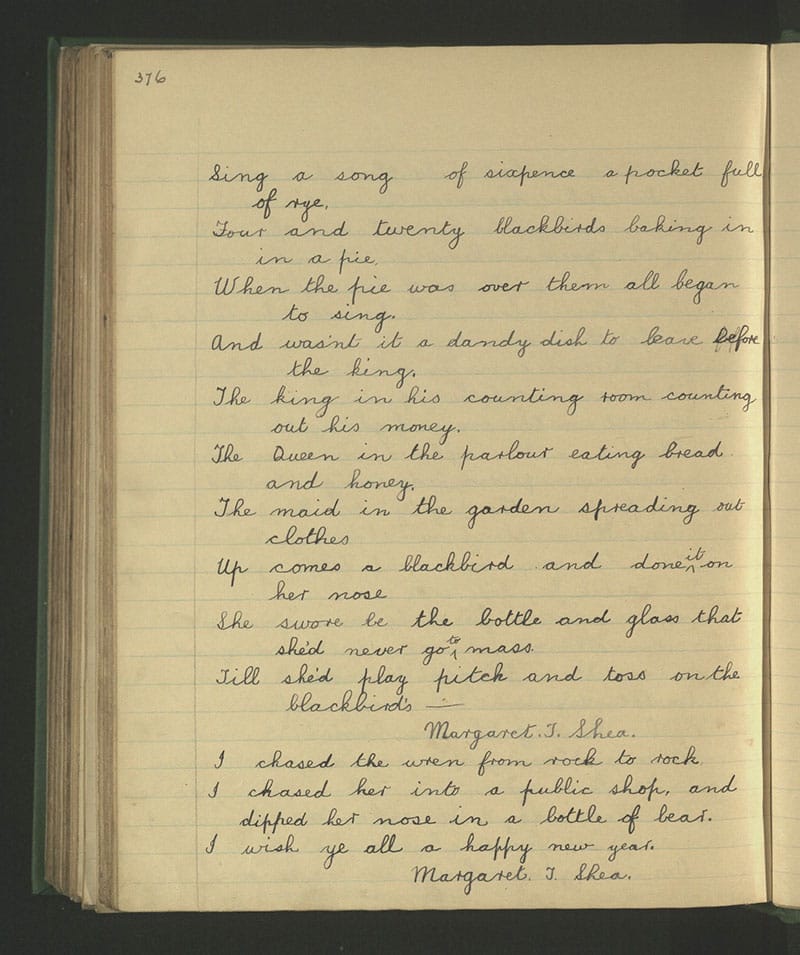 376
Sing a song of sixpence a pocket full
of rye.
Four and twenty blackbirds baking in
in a pie.
When the pie was over them all began
to sing.
And was'nt it a dandy dish to leave before
the king.
The king in his counting room counting
out his money.
The Queen in the parlour eating bread
and honey.
The maid in the garden spreading out
clothes
Up comes a blackbird and done it on
her nose
She swore be the bottle and glass that
she'd never go to mass.
Till she'd play pitch and toss on the
blackbird's —
Margaret. T. Shea.
I chased the wren from rock to rock
I chased her into a public shop, and
dipped her nose in a bottle of bear.
I wish ye all a happy new year.
Margaret. T. Shea.